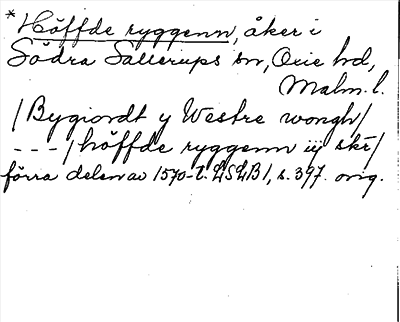 * Höffde ryggenn, åker i
Södra Sallerups sn, Oxie hd,
Malm. l.
/Bygiordt y Westre wongh/
---/höffde ryggenn iij skr/
förra delen av 1570-t. LSLB1, s. 397. orig.